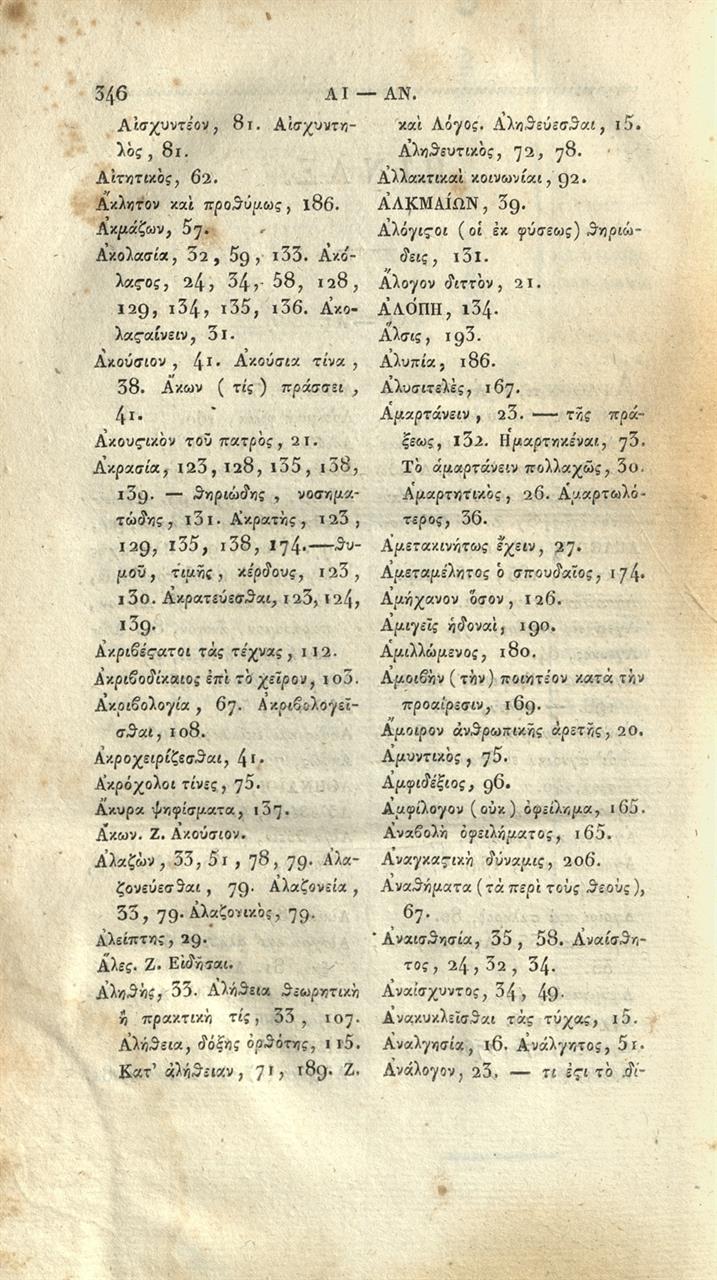 346
ΑΙ — ΑΝ.
Αἰσχυντέον, 81. Αἰσχυντη-
λὸς, 81.
Αἰτητικὸς, 62.
Ἄκλητον καὶ προθύμως, 186.
Ἀκμάζων, 57.
Ἀκολασία, 32, 59, 133. Ἀκό-
λαϛος, 24, 34, 58, 128,
129, 134, 135, 136. Ἀκο-
λαϛαίνειν, 31.
Ἀκούσιον, 41. Ἀκούσια τίνα,
38. Ἄκων (τίς) πράσσει,
41.
Ἀκουϛικὸν τοῦ πατρὸς, 21.
Ἀκρασία, 123, 128, 135, 138,
139. — θηριώδης, νοσημα-
τώδης, 131. Ἀκρατὴς, 123,
129, 135, 138, 174. — θυ-
μοῦ, τιμῆς, κέρδους, 123,
130. Ἀκρατεύεσθαι, 123, 124,
139.
Ἀκριβέϛατοι τὰς τέχνας, 112.
Ἀκριβοδίκαιος ἐπὶ τὸ χεῖρον, 103.
Ἀκριβολογία, 67. Ἀκριβολογεῖ-
σθαι, 108.
Ἀκροχειρίζεσθαι, 41.
Ἀκρόχολοι τίνες, 75.
Ἄκυρα ψηφίσματα, 137.
Ἄκων. Ζ. Ἀκούσιον.
Ἀλαζὼν, 33, 51, 78, 79. Ἀλα-
ζονεύεσθαι, 79. Ἀλαζονεία,
33, 79. Ἀλαζονικὸς, 79.
Ἀλείπτης, 29.
Ἅλες. Ζ. Εἰδῆσαι.
Ἀληθὴς, 33. Ἀλήθεια θεωρητικὴ
ἢ πρακτικὴ τίς, 33, 107.
Ἀλήθεια, δόξης ὀρθότης, 115.
Κατ' ἀλήθειαν, 71, 189. Ζ.
καὶ Λόγος. Ἀληθεύεσθαι, 15.
Ἀληθευτικὸς, 72, 78.
Ἀλλακτικαὶ κοινωνίαι, 92.
ἈΛΚΜΑΊΩΝ, 39.
Ἀλόγιϛοι (οἱ ἐκ φύσεως) θηριώ-
δεις, 131.
Ἄλογον διττὸν, 21.
ἈΛΌΠΗ, 134.
Ἄλσις, 193.
Ἀλυπία, 186.
Ἀλυσιτελὲς, 167.
Ἁμαρτάνειν, 23. — τῆς πρά-
ξεως, 132. Ἡμαρτηκέναι, 73.
Τὸ ἁμαρτάνειν πολλαχῶς, 30.
Ἁμαρτητικὸς, 26. Ἁμαρτωλό-
τερος, 36.
Ἀμετακινήτως ἔχειν, 27.
Ἀμεταμέλητος ὁ σπουδαῖος, 174.
Ἀμήχανον ὅσον, 126.
Ἀμιγεῖς ἡδοναὶ, 190.
Ἁμιλλώμενος, 180.
Ἀμοιβὴν (τὴν) ποιητέον κατὰ τὴν
προαίρεσιν, 169.
Ἄμοιρον ἀνθρωπικῆς ἀρετῆς, 20.
Ἀμυντικὸς, 75.
Ἀμφιδέξιος, 96.
Ἀμφίλογον (οὐκ) ὀφείλημα, 165.
Ἀναβολὴ ὀφειλήματος, 165.
Ἀναγκαϛικὴ δύναμις, 206.
Ἀναθήματα (τὰ περὶ τοὺς θεοὺς),
67.
Ἀναισθησία, 35, 58. Ἀναίσθη-
τος, 24, 32, 34.
Ἀναίσχυντος, 34, 49.
Ἀνακυκλεῖσθαι τὰς τύχας, 15.
Ἀναλγησία, 16. Ἀνάλγητος, 51.
Ἀνάλογον, 23. — τι ἐϛι τὸ δί-